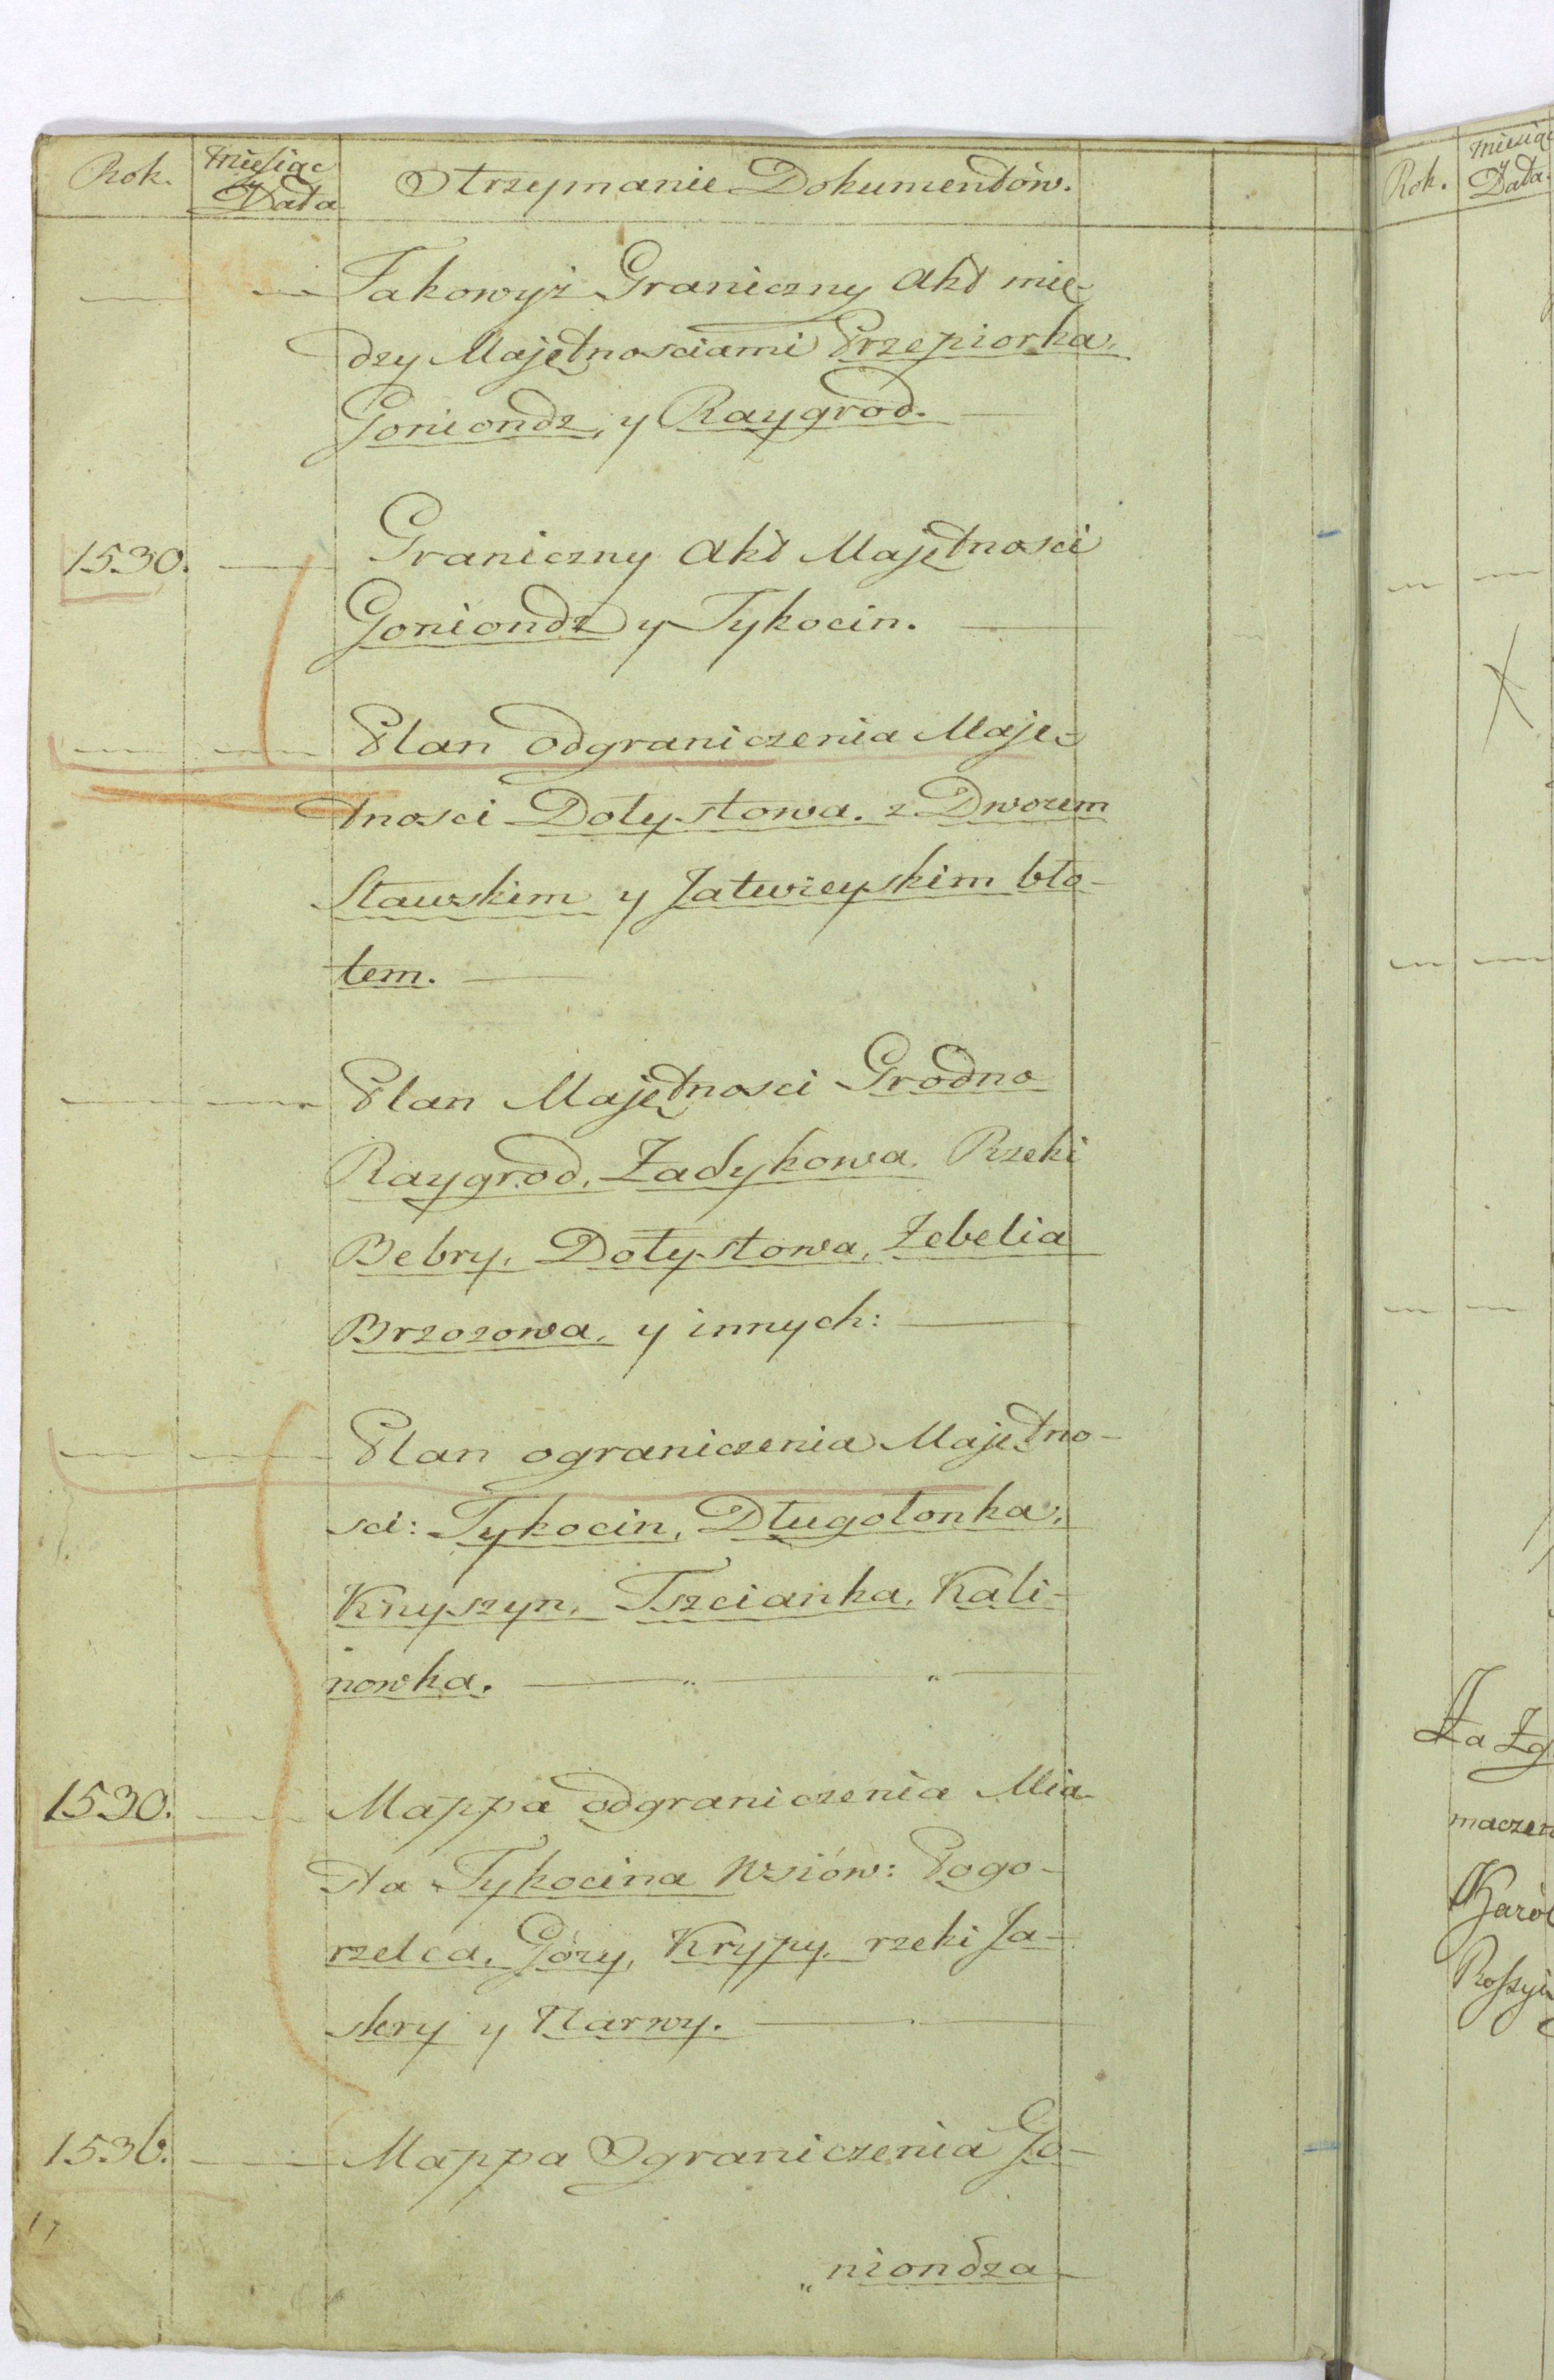 Rok. Miesiąc y Data Otrzymanie Dokumentów.
Takowyż Graniczny Akt mię-
dzy Majętnosciami Przepiorka,
Goniondz, y Raygrod.
1530. Graniczny Akt Majętnosci
Goniondz y Tykocin.
Plan odgraniczenia Maję-
tnosci Dołystowa. z Dworem
Stawskim y Jatwieyskim bło-
tem.
Plan Majętnosci Grodno
Raygrod, Zadykowa, Rzeki
Bebry, Dołystowa, Zebelia
Brzozowa, y innych:
Plan ograniczenia Majętno-
sci: Tykocin, Długołonka,
Knyszyn, Tszcianka, Kali-
nowka.
1530. Mappa odgraniczenia Mia-
sta Tykocina Wsiów: Pogo-
rzelca, Góry, Krypy, rzeki Ja-
skry y Narwy.
1536. Mappa Ograniczenia Go-
niondza
17
Rok. Miesiąc y Data.
Za Zg
maczen
Karol
Rossyi